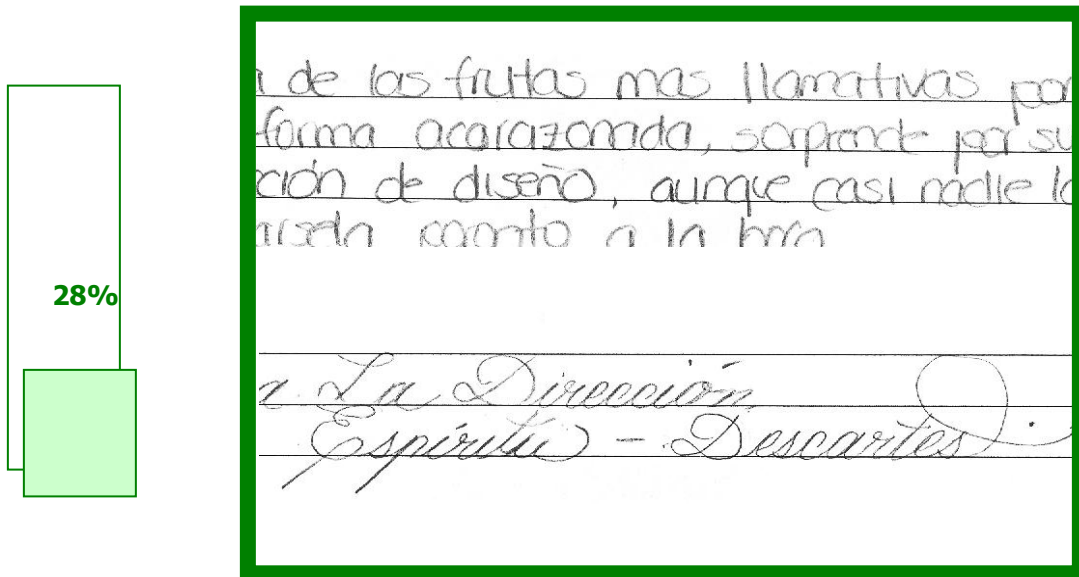 28%
de las frutas mas llamativas por
forma acarazonada, sorprende por su
ción de diseño, aunque casi nadie lo
a la hora
a La Dirección
Espíritu - Descartes